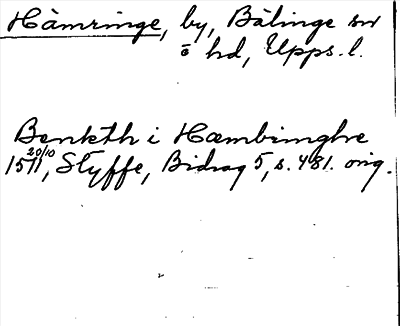 Hämringe, by, Bälinge sn
ō hd, Upps. l.
Benkth i Hæmbringhe
1511 20/10, Styffe, Bidrag 5, s. 481. orig.